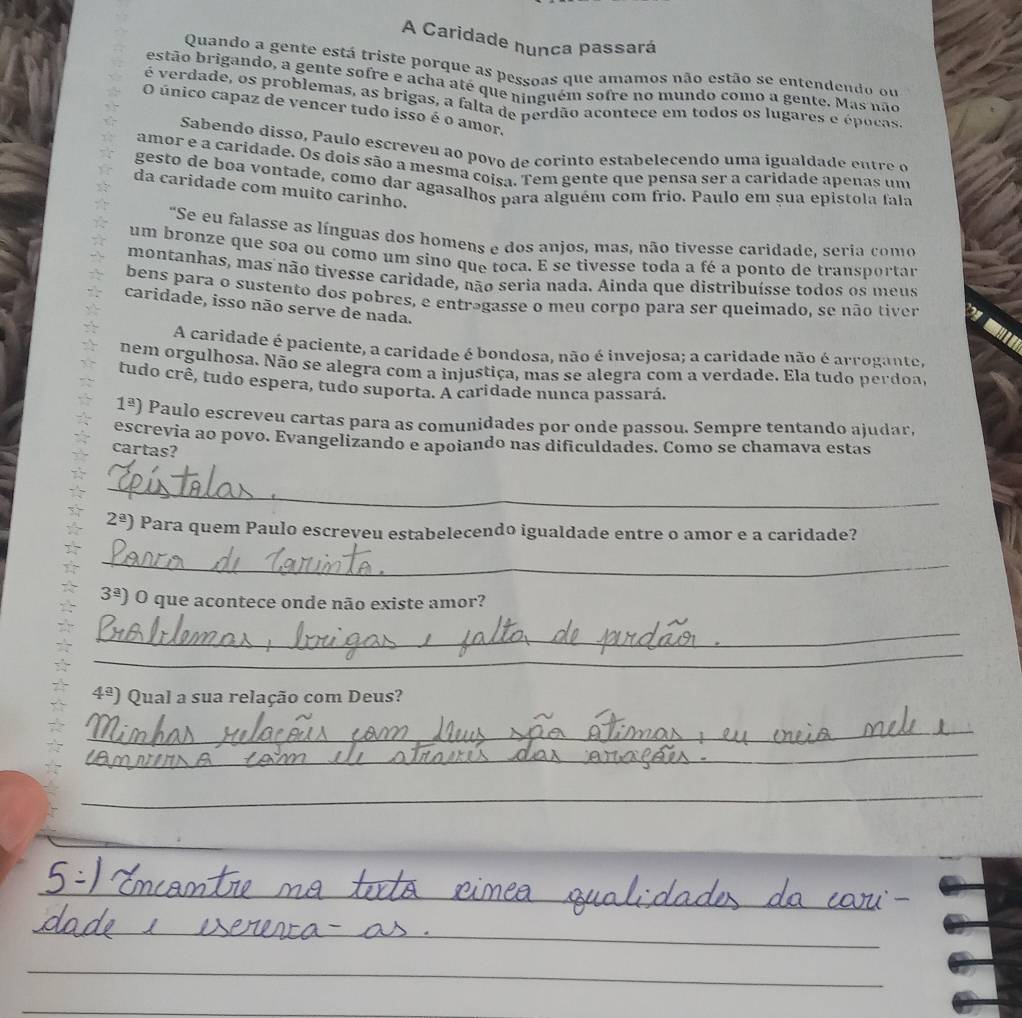 A Caridade nunca passará
Quando a gente está triste porque as pessoas que amamos não estão se entendendo ou
estão brigando, a gente sofre e acha até que ninguém sofre no mundo como a gente. Mas não
é verdade, os problemas, as brigas, a falta de perdão acontece em todos os lugares e épocas.
O único capaz de vencer tudo isso é o amor.
Sabendo disso, Paulo escreveu ao povo de corinto estabelecendo uma igualdade entre o
amor e a caridade. Os dois são a mesma coisa. Tem gente que pensa ser a caridade apenas um
gesto de boa vontade, como dar agasalhos para alguém com frio. Paulo em sua epistola fala
da caridade com muito carinho.
"Se eu falasse as línguas dos homens e dos anjos, mas, não tivesse caridade, seria como
um bronze que soa ou como um sino que toca. E se tivesse toda a fé a ponto de transportar
montanhas, mas não tivesse caridade, não seria nada. Ainda que distribuísse todos os meus
bens para o sustento dos pobres, e entregasse o meu corpo para ser queimado, se não tiver
caridade, isso não serve de nada.
A caridade é paciente, a caridade é bondosa, não é invejosa; a caridade não é arrogante,
nem orgulhosa. Não se alegra com a injustiça, mas se alegra com a verdade. Ela tudo perdoa,
tudo crê, tudo espera, tudo suporta. A caridade nunca passará.
1ª) Paulo escreveu cartas para as comunidades por onde passou. Sempre tentando ajudar,
escrevia ao povo. Evangelizando e apoiando nas dificuldades. Como se chamava estas
cartas?
Epistolas.
2ª) Para quem Paulo escreveu estabelecendo igualdade entre o amor e a caridade?
Povo de Corinto.
3ª) O que acontece onde não existe amor?
Problemas, brigas e falta de perdão.
4ª) Qual a sua relação com Deus?
Minhas relações com Deus são ótimas, eu creio nele e
converso com ele através das orações.
5=) Encontre no texto cinco qualidades da cari-
dade e escreva-as.